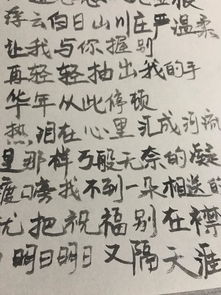 浮云白日山川庄严温柔
让我与你握别
再轻轻抽出我的手
华年从此停顿
热泪在心里汇成河流
是那样万般无奈的凝
渡口旁找不到一朵相送的
就把祝福别在襟
明日明日又隔天涯